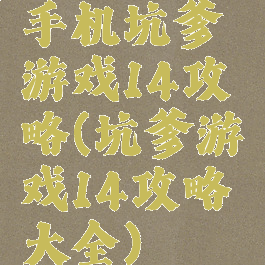 手机坑爹
游戏14攻
略(坑爹游
戏14攻略
大全)